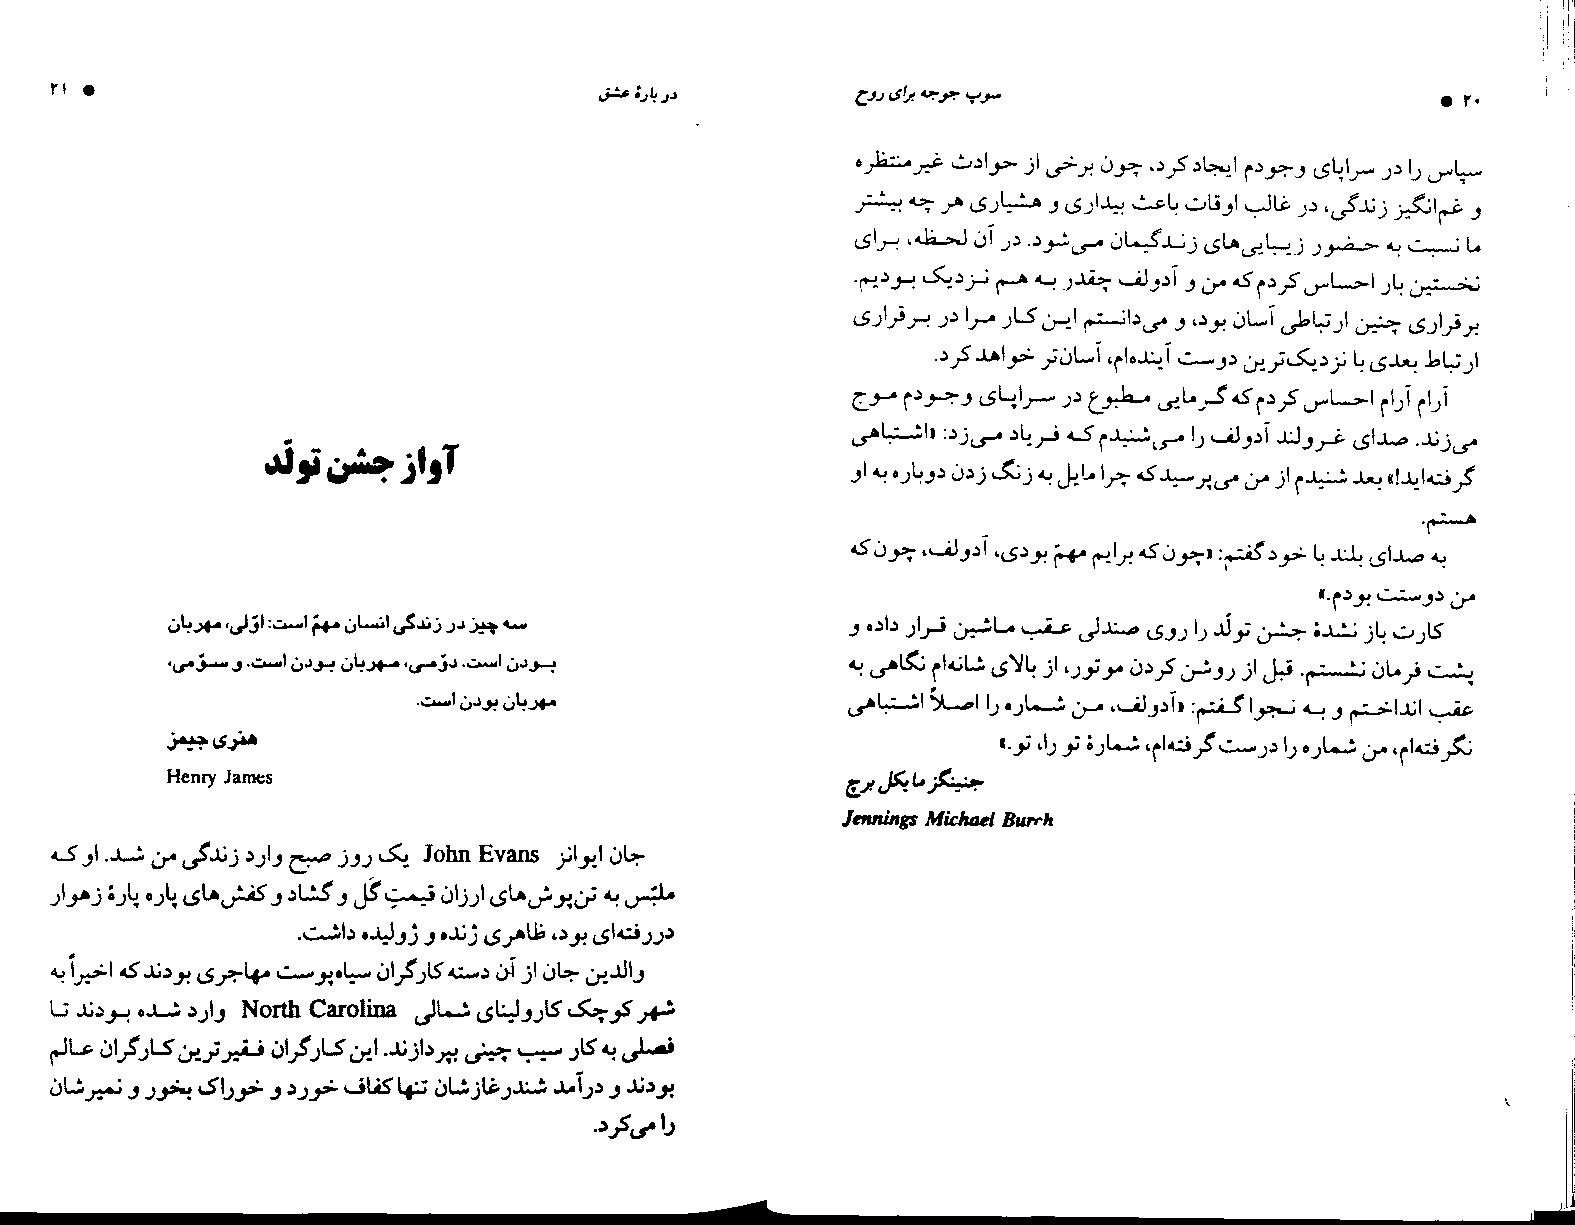 ۲۰ ● سوپ جوجه برای روح
سپاس را در سراپای وجودم ایجاد کرد، چون برخی از حوادث غیرمنتظره
و غم‌انگیز زندگی، در غالب اوقات باعث بیداری و هشیاری هر چه بیشتر
ما نسبت به حضور زیبایی‌های زندگیمان می‌شود. در آن لحظه، برای
نخستین بار احساس کردم که من و آدولف چقدر به هم نزدیک بودیم.
برقراری چنین ارتباطی آسان بود، و می‌دانستم این کار مرا در برقراری
ارتباط بعدی با نزدیک‌ترین دوست آینده‌ام، آسان‌تر خواهد کرد.
آرام آرام احساس کردم که گرمایی مطبوع در سراپای وجودم موج
می‌زند. صدای غرولند آدولف را می‌شنیدم که فریاد می‌زد: «اشتباهی
گرفته‌اید!» بعد شنیدم از من می‌پرسید که چرا مایل به زنگ زدن دوباره به او
هستم.
به صدای بلند با خود گفتم: «چون که برایم مهمّ بودی، آدولف، چون که
من دوستت بودم.»
کارت باز نشدهٔ جشن تولّد را روی صندلی عقب ماشین قرار داده و
پشت فرمان نشستم. قبل از روشن کردن موتور، از بالای شانه‌ام نگاهی به
عقب انداختم و به نجوا گفتم: «آدولف، من شماره را اصلاً اشتباهی
نگرفته‌ام، من شماره را درست گرفته‌ام، شمارهٔ تو را، تو.»
جنینگز مایکل برچ
Jennings Michael Burrh
دربارهٔ عشق ● ۲۱
آواز جشن تولّد
سه چیز در زندگی انسان مهمّ است: اوّلی، مهربان
بودن است. دوّمی، مهربان بودن است. و سوّمی،
مهربان بودن است.
هنری جیمز
Henry James
جان ایوانز John Evans یک روز صبح وارد زندگی من شد. او که
ملبّس به تن‌پوش‌های ارزان قیمتِ گَل و گشاد و کفش‌های پاره پارهٔ زهوار
دررفته‌ای بود، ظاهری ژنده و ژولیده داشت.
والدین جان از آن دسته کارگران سیاه‌پوست مهاجری بودند که اخیراً به
شهر کوچک کارولینای شمالی North Carolina وارد شده بودند تا
فصلی به کار سیب چینی بپردازند. این کارگران فقیرترین کارگران عالم
بودند و درآمد شندرغازشان تنها کفاف خورد و خوراک بخور و نمیرشان
را می‌کرد.